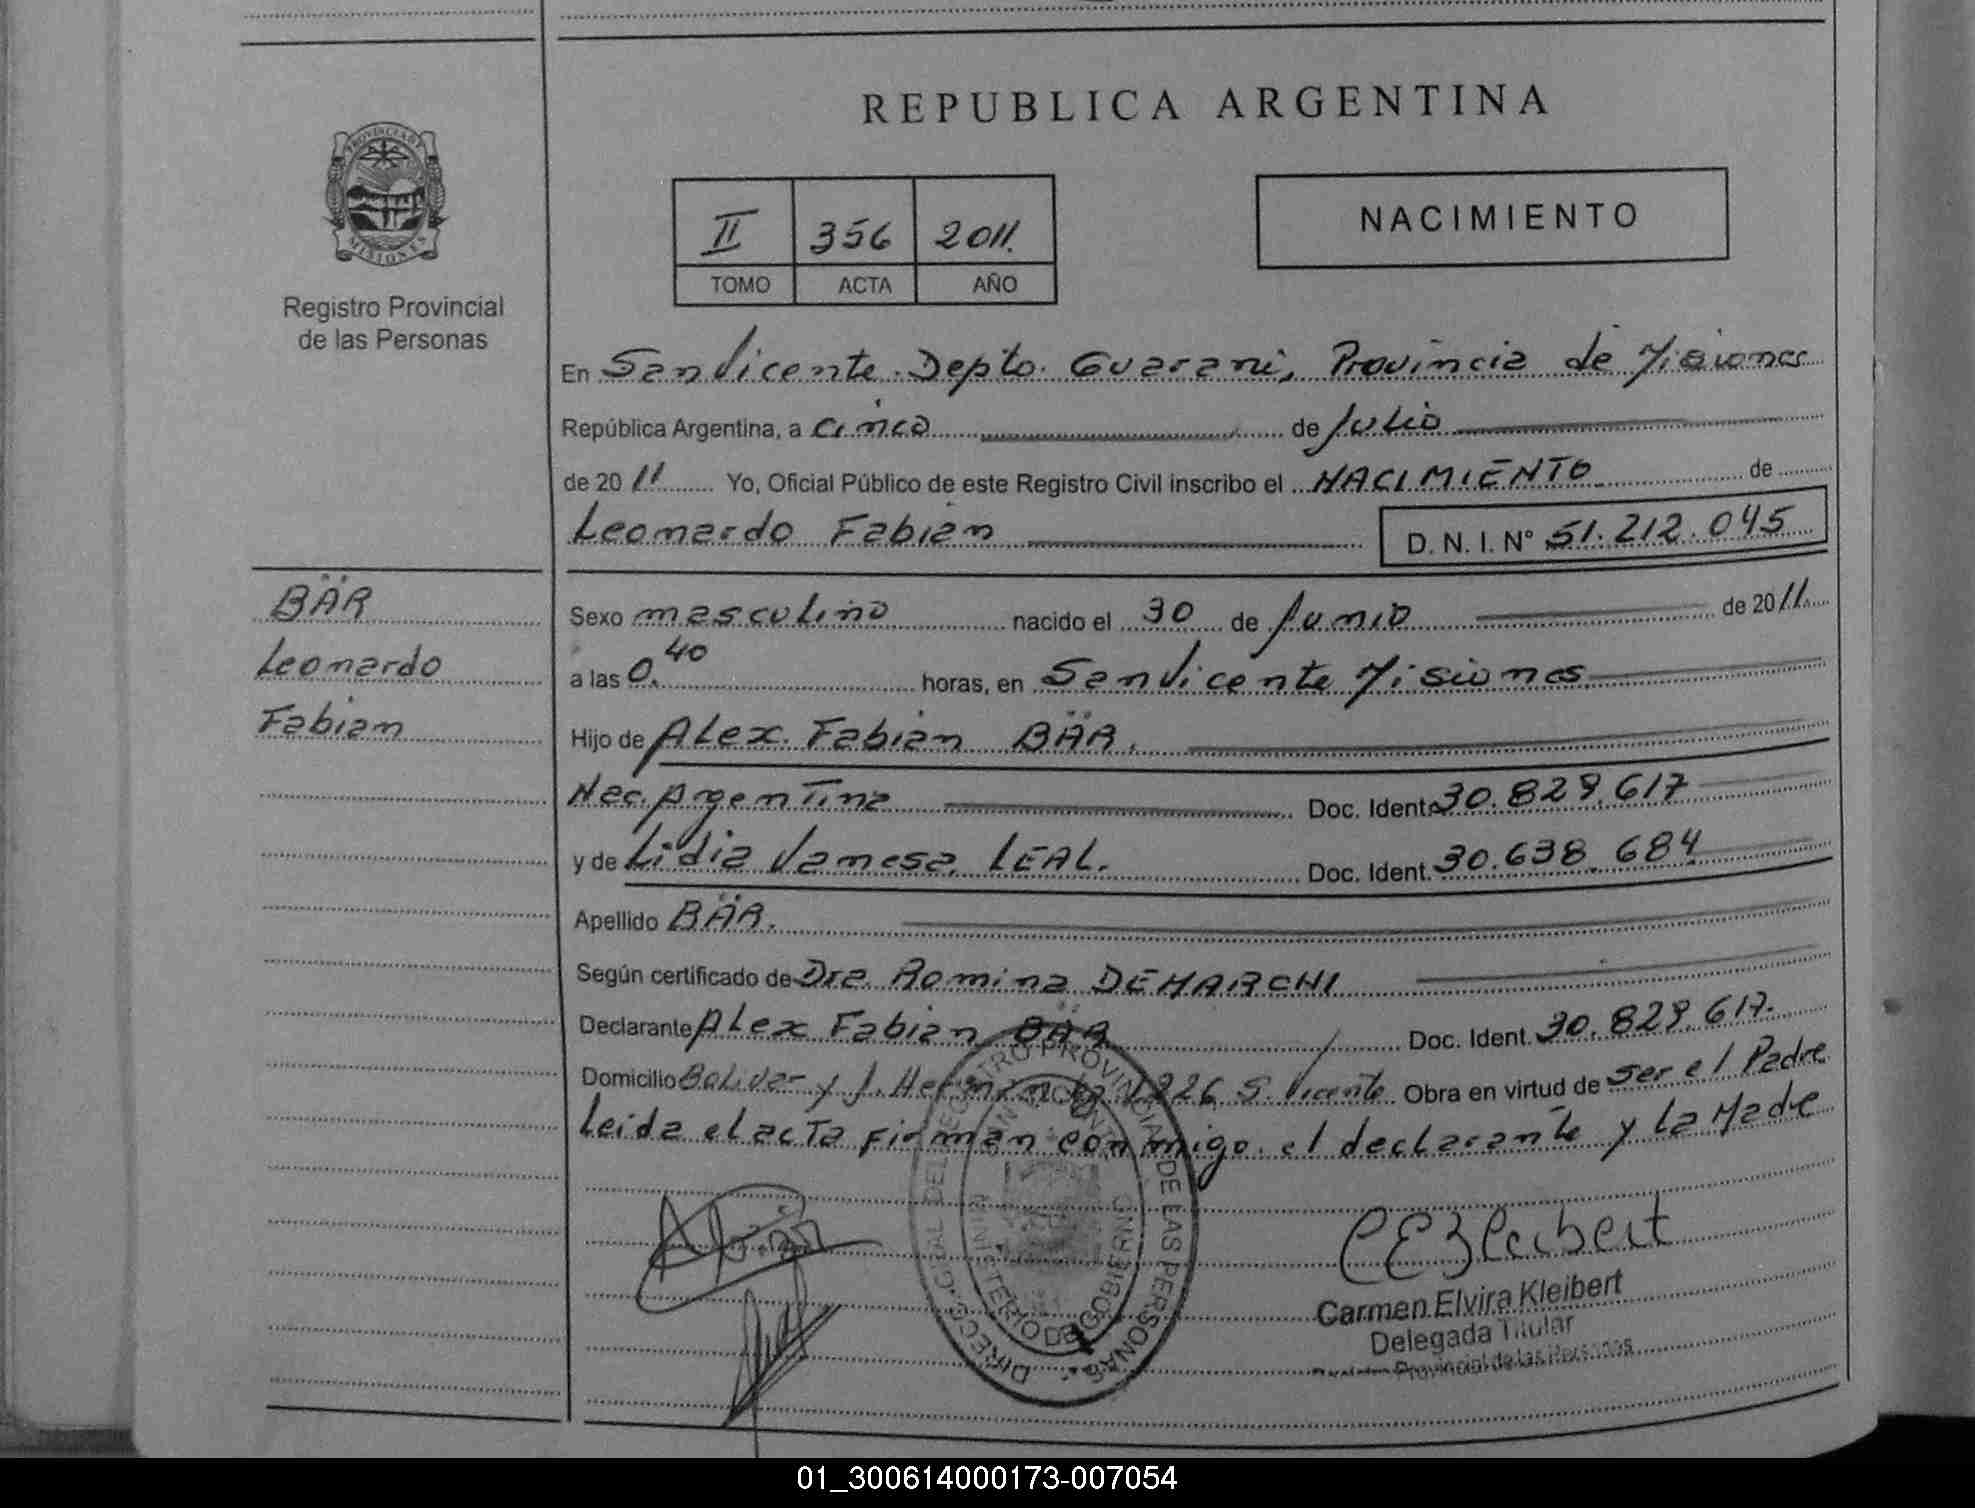 REPUBLICA ARGENTINA
PROVINCIA DE
MISIONES
Registro Provincial
de las Personas
II 356 2011.
TOMO ACTA AÑO
NACIMIENTO
En San Vicente. Depto. Guarani, Provincia de Misiones
República Argentina, a cinco de Julio
de 20 11 Yo, Oficial Público de este Registro Civil inscribo el NACIMIENTO de
Leonardo Fabian D. N. I. N° 51.212.045
BÄR
Leonardo
Fabian
Sexo masculino nacido el 30 de Junio de 20 11.
a las 0.40 horas, en San Vicente Misiones
Hijo de Alex Fabian BÄR.
Nac. Argentina Doc. Ident. 30.829.617
y de Lidia Vanesa LEAL. Doc. Ident. 30.638.684
Apellido BÄR.
Según certificado de Dra. Romina DEMARCHI
Declarante Alex Fabian BÄR Doc. Ident. 30.829.617.
Domicilio Bolivar y J. S. Vicente Obra en virtud de ser el Padre
Leida el acta firman conmigo el declarante y la Madre
DIRECC. GRAL. DEL REGISTRO PROVINCIAL DE LAS PERSONAS
SAN VICENTE
MINISTERIO DE GOBIERNO
CEKleibert
Carmen Elvira Kleibert
Delegada Titular
Provincial de las Personas
01_300614000173-007054